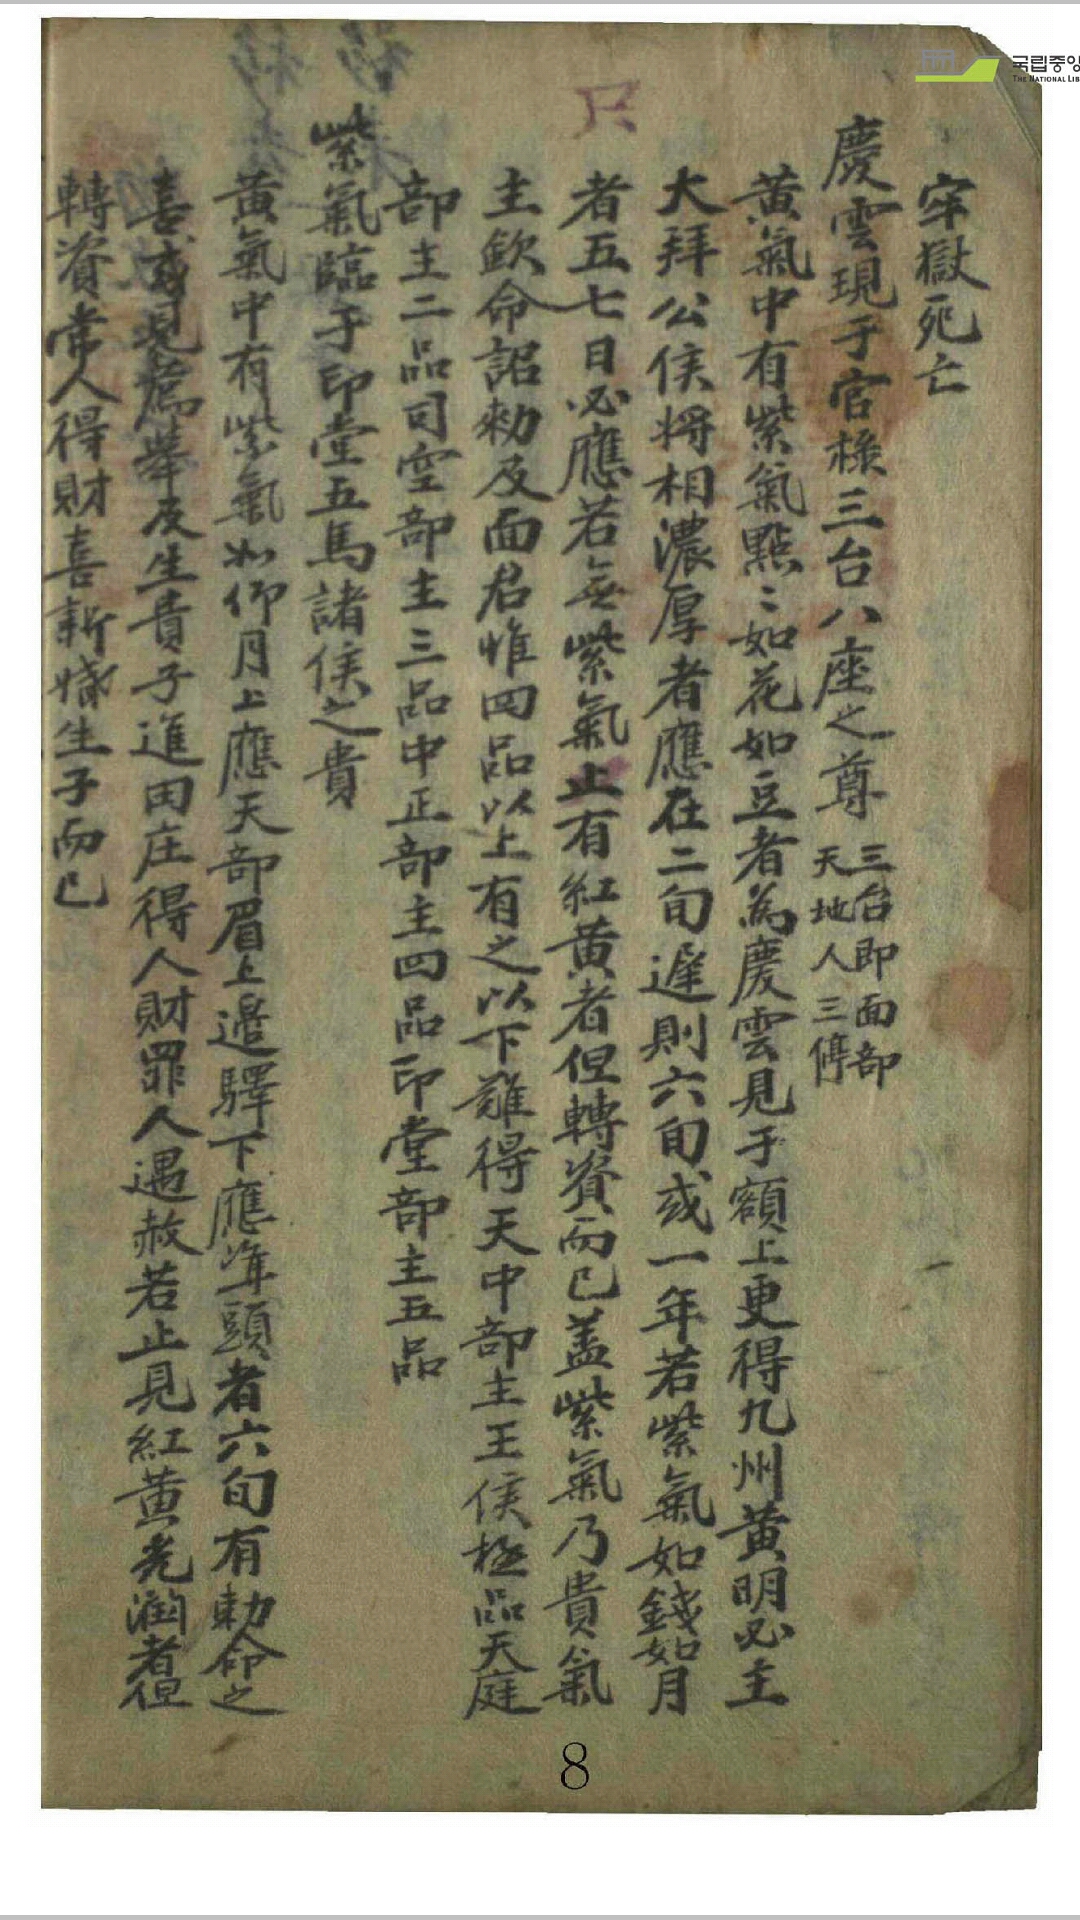 牢獄死亡
慶雲現于官祿三台八座之尊 三台即面部
天地人三停
黃氣中有紫氣點〻如花如豆者為慶雲見于額上更得九州黃明必主
大拜公侯將相濃厚者應在二旬遲則六旬或一年若紫氣如錢如月
者五七日必應若無紫氣止有紅黃者但轉資而已盖紫氣乃貴氣
主欽命詔勅及面君惟四品以上有之以下難得天中部主王侯極品天庭
部主二品司空部主三品中正部主四品印堂部主五品
紫氣臨于印堂五馬諸侯之貴
黃氣中有紫氣如仰月上應天部眉上邉驛下應準頭者六旬有勅命之
喜或見薦舉及生貴子進田庄得人財罪人遇赦若止見紅黃光潤者但
轉資常人得財喜新婚生子而已
只
8
국립중앙
THE NATIONAL LIB